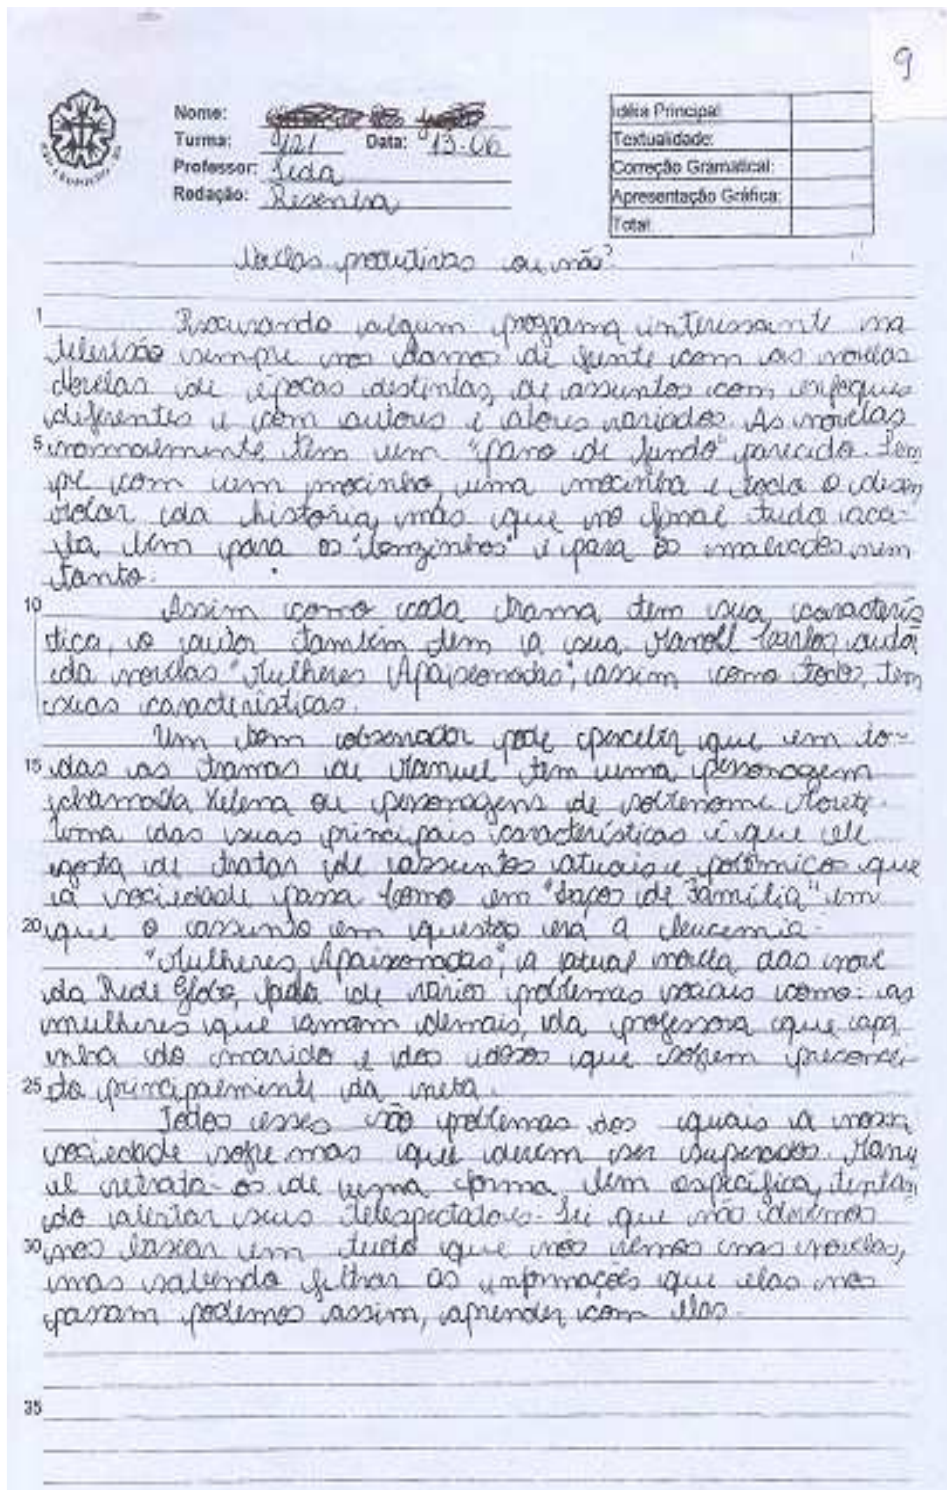 9
Nome:
Turma: 121 Data: 13-06
Professor: Leda
Redação: Resenha
Idéia Principal:
Textualidade:
Correção Gramatical:
Apresentação Gráfica:
Total:
Novelas produtivas ou não?
1 Procurando algum programa interessante na
televisão sempre nos damos de frente com as novelas
Novelas de épocas distintas, de assuntos com enfoques
diferentes e com autores e atores variados. As novelas
5 normalmente têm um "pano de fundo" parecido. Sem
pre com um mocinho, uma mocinha e todo o desen
rolar da história, mas que no final tudo aca-
ba bem para os "bonzinhos" e para os malvados nem
tanto.
10 Assim como cada trama tem sua caracterís
tica, o autor também tem a sua. Manoel Carlos autor
da novelas "Mulheres Apaixonadas", assim como todos, tem
suas características.
Um bom observador pode perceber que em to-
15 das as tramas de Manuel tem uma personagem
chamada Helena ou personagens de sobrenome
Uma das suas principais características é que ele
gosta de tratar de assuntos atuais e polêmicos que
a sociedade passa. Como em "Laços de Família" em
20 que o assunto em questão era a leucemia.
"Mulheres Apaixonadas", a atual novela das nove
da Rede Globo, fala de vários problemas sociais como: as
mulheres que amam demais, da professora que apa
nha do marido e dos idosos que sofrem preconcei
25 to principalmente da neta.
Todos esses são problemas dos quais a nossa
sociedade sofre mas que devem ser superados. Manu
el retrata-os de uma forma bem específica, tentan
do alertar seus telespectadores. Sei que não devemos
30 nos basear em tudo que nós vemos nas novelas,
mas sabendo filtrar as informações que elas nos
passam podemos assim, aprender com elas.
35